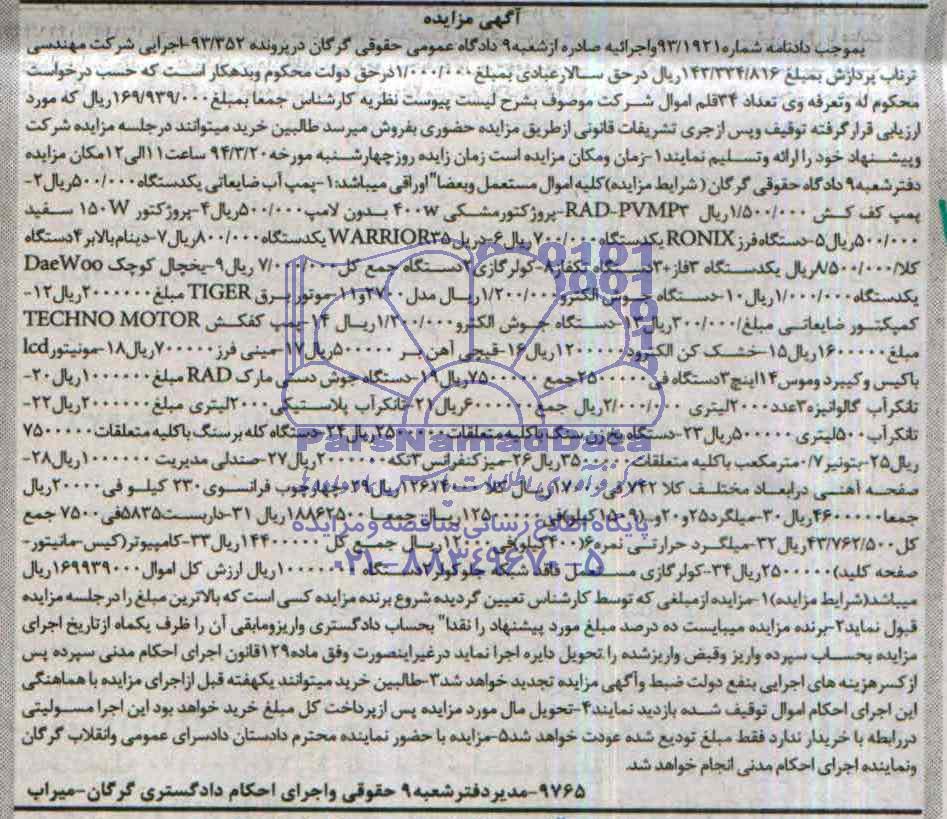 آگهی مزایده
بموجب دادنامه شماره ۹۳/۱۹۲۱واجرائیه صادره ازشعبه ۹ دادگاه عمومی حقوقی گرگان درپرونده ۹۳/۳۵۲-اجرایی شرکت مهندسی
ترناب پردازش بمبلغ ۱۴۳/۳۳۴/۸۱۶ریال درحق سالارعبادی بمبلغ ۱/۰۰۰/۰۰۰درحق دولت محکوم وبدهکار است که حسب درخواست
محکوم له وتعرفه وی تعداد ۳۴قلم اموال شرکت موصوف بشرح لیست پیوست نظریه کارشناس جمعا بمبلغ ۱۶۹/۹۳۹/۰۰۰ریال که مورد
ارزیابی قرارگرفته توقیف وپس ازجری تشریفات قانونی ازطریق مزایده حضوری بفروش میرسد طالبین خرید میتوانند درجلسه مزایده شرکت
وپیشنهاد خود را ارائه وتسلیم نمایند۱-زمان ومکان مزایده است زمان زایده روزچهارشنبه مورخه ۹۴/۳/۲۰ ساعت۱۱الی۱۲مکان مزایده
دفترشعبه ۹ دادگاه حقوقی گرگان ( شرایط مزایده) کلیه اموال مستعمل وبعضا" اوراقی میباشد:۱-پمپ آب ضایعاتی یکدستگاه ۵۰۰/۰۰۰ریال۲-
پمپ کف کش ۱/۵۰۰/۰۰۰ریال RAD-PVMP۳-پروژکتورمشکی ۴۰۰w بدون لامپ ۵۰۰/۰۰۰ریال۴-پروژکتور ۱۵۰W سفید
۵۰۰/۰۰۰ریال۵-دستگاه فرز RONIX یکدستگاه ۷۰۰/۰۰۰ریال۶-دریل WARRIOR۳۵ یکدستگاه ۸۰۰/۰۰۰ریال۷-دینام بالابر ۴دستگاه
کلا ۸/۵۰۰/۰۰۰ریال یکدستگاه ۳فاز+۳دستگاه تکفاز۸-کولرگازی ۷دستگاه جمع کل ۷/۰۰۰/۰۰۰ ریال۹-یخچال کوچک DaeWoo
یکدستگاه ۱/۰۰۰/۰۰۰ریال۱۰-دستگاه جوش الکترو ۱/۲۰۰/۰۰۰ریال مدل ۲۷۰و۱۱-موتور برق TIGER مبلغ ۲۰۰۰۰۰۰ریال۱۲-
کمپکتور ضایعاتی مبلغ ۳۰۰/۰۰۰ریال۱۳-دستگاه جوش الکترو ۱/۲۰۰/۰۰۰ریال ۱۴-پمپ کفکش TECHNO MOTOR
مبلغ ۱۶۰۰۰۰۰ریال۱۵-خشک کن الکترود ۱۲۰۰۰۰۰ریال۱۶-قیچی آهن بر ۵۰۰۰۰۰ریال۱۷-مینی فرز ۷۰۰۰۰۰ریال۱۸-مونیتور lcd
باکیس وکیبرد وموس ۱۴اینچ ۳دستگاه فی ۲۵۰۰۰۰۰جمع ۷۵۰۰۰۰۰ریال۱۹-دستگاه جوش دستی مارک RAD مبلغ ۱۰۰۰۰۰۰ریال۲۰-
تانکرآب گالوانیزه ۳عدد ۲۰۰۰لیتری ۲/۰۰۰/۰۰۰ریال جمع ۶۰۰۰۰۰۰ریال۲۱-تانکرآب پلاستیکی ۲۰۰۰لیتری مبلغ ۲۰۰۰۰۰۰ریال۲۲-
تانکرآب ۵۰۰لیتری ۵۰۰۰۰۰ریال۲۳-دستگاه پخ زن سنگ باکلیه متعلقات ۲۵۰۰۰۰۰ریال ۲۴-دستگاه کله بر سنگ باکلیه متعلقات ۷۵۰۰۰۰۰
ریال۲۵-بتونیر ۰/۷مترمکعب باکلیه متعلقات ۳۵۰۰۰۰۰۰ریال۲۶-میزکنفرانس ۳تکه ۲۰۰۰۰۰۰ریال۲۷-صندلی مدیریت ۱۰۰۰۰۰۰ریال۲۸-
صفحه آهنی درابعاد مختلف کلا ۷۴۲ فی ۱۷۰۰۰ریال کلا ۱۲۶۱۴۰۰۰ریال۲۹-چهارچوب فرانسوی ۲۳۰ کیلو فی ۲۰۰۰۰ریال
جمعا ۴۶۰۰۰۰۰ریال ۳۰-میلگرد۲۵و۲۰و... ۱۵۰۹(کیلو)فی ۱۲۵۰۰ریال جمعا ۱۸۸۶۲۵۰۰ریال ۳۱-داربست ۵۸۳۵فی ۷۵۰۰ جمع
کل ۴۳/۷۶۲/۵۰۰ریال۳۲-میلگرد حرارتی نمره ۶(۴۰۰کیلو)فی ۱۲۰۰۰ریال جمع کل ۱۴۴۰۰۰۰۰ریال۳۳-کامپیوتر(کیس-مانیتور-
صفحه کلید)۲۵۰۰۰۰۰ریال۳۴-کولرگازی مستعمل فاقد شبکه جلو کولر ۲دستگاه ۱۰۰۰۰۰۰ریال ارزش کل اموال ۱۶۹۹۳۹۰۰۰ریال
میباشد(شرایط مزایده)۱-مزایده ازمبلغی که توسط کارشناس تعیین گردیده شروع برنده مزایده کسی است که بالاترین مبلغ را درجلسه مزایده
قبول نماید۲-برنده مزایده میبایست ده درصد مبلغ مورد پیشنهاد را نقدا" بحساب دادگستری واریزومابقی آن را ظرف یکماه ازتاریخ اجرای
مزایده بحساب سپرده واریز وقبض واریزشده را تحویل دایره اجرا نماید درغیراینصورت وفق ماده ۱۲۹قانون اجرای احکام مدنی سپرده پس
ازکسرهزینه های اجرایی بنفع دولت ضبط وآگهی مزایده تجدید خواهد شد۳-طالبین خرید میتوانند یکهفته قبل ازاجرای مزایده با هماهنگی
این اجرای احکام اموال توقیف شده بازدید نمایند۴-تحویل مال مورد مزایده پس ازپرداخت کل مبلغ خرید خواهد بود این اجرا مسولیتی
دررابطه با خریدار ندارد فقط مبلغ تودیع شده عودت خواهد شد۵-مزایده با حضور نماینده محترم دادستان دادسرای عمومی وانقلاب گرگان
ونماینده اجرای احکام مدنی انجام خواهد شد.
۹۷۶۵-مدیردفترشعبه ۹ حقوقی واجرای احکام دادگستری گرگان-میراب
ParsNamadData
پایگاه اطلاع رسانی مناقصه و مزایده
۰۲۱-۸۸۳۴۹۶۷۰-۵